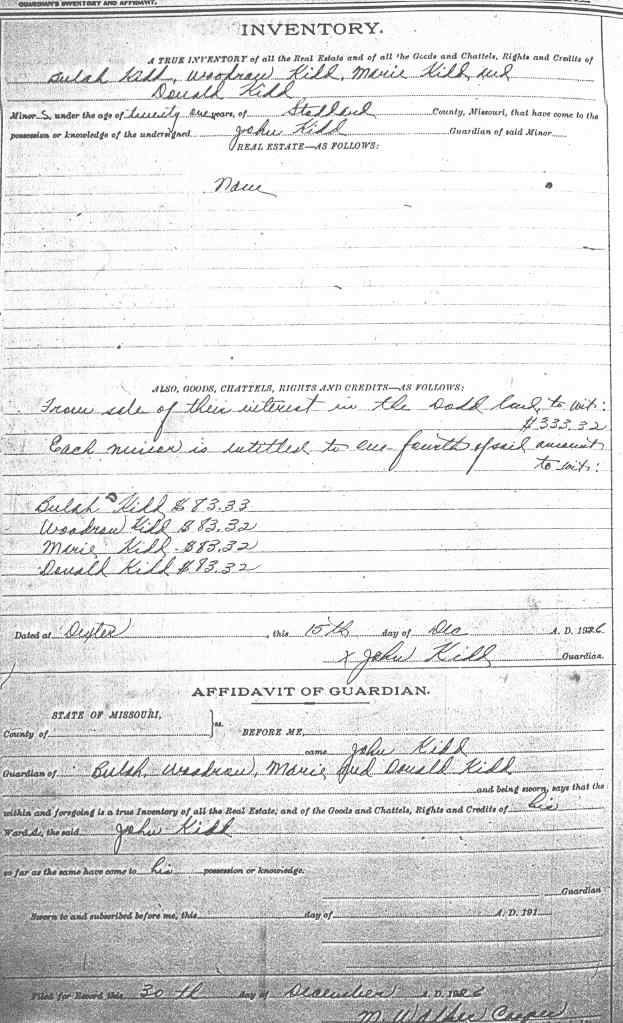 GUARDIAN'S INVENTORY AND AFFIDAVIT.
INVENTORY.
A TRUE INVENTORY of all the Real Estate and of all the Goods and Chattels, Rights and Credits of
Bulah Kidd, Woodrow Kidd, Marie Kidd and
Donald Kidd
Minor S, under the age of twenty one years, of Stoddard County, Missouri, that have come to the
possession or knowledge of the undersigned John Kidd Guardian of said Minor
REAL ESTATE—AS FOLLOWS:
None
ALSO, GOODS, CHATTELS, RIGHTS AND CREDITS—AS FOLLOWS:
From sale of their interest in the Dodd land, to wit:
$333.32
Each minor is entitled to one-fourth of said amount
to wit:
Bulah Kidd $83.33
Woodrow Kidd $83.32
Marie Kidd $83.32
Donald Kidd $83.32
Dated at Dexter, this 15th day of Dec A. D. 1926.
x John Kidd Guardian.
AFFIDAVIT OF GUARDIAN.
STATE OF MISSOURI,
County of ss. BEFORE ME,
came John Kidd
Guardian of Bulah, Woodrow, Marie and Donald Kidd
and being sworn, says that the
within and foregoing is a true Inventory of all the Real Estate, and of the Goods and Chattels, Rights and Credits of his
Ward &c, the said John Kidd
so far as the same have come to his possession or knowledge.
Guardian
Sworn to and subscribed before me, this day of A. D. 191
Filed for Record this 30th day of December A. D. 1926
M. Walker Cooper